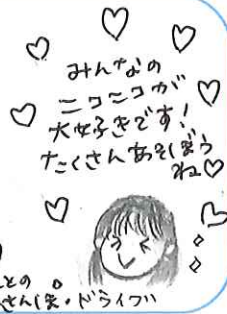 みんなの
ニコニコが
大好きです!
たくさんあそぼう
ね♡
との
さん(笑・ドライブ)